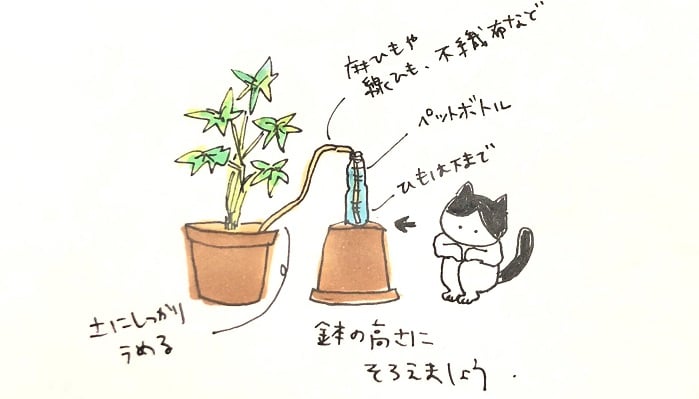 麻ひもや
綿ひも、不織布など
ペットボトル
ひもは下まで
土にしっかり
うめる
鉢の高さに
そろえましょう.